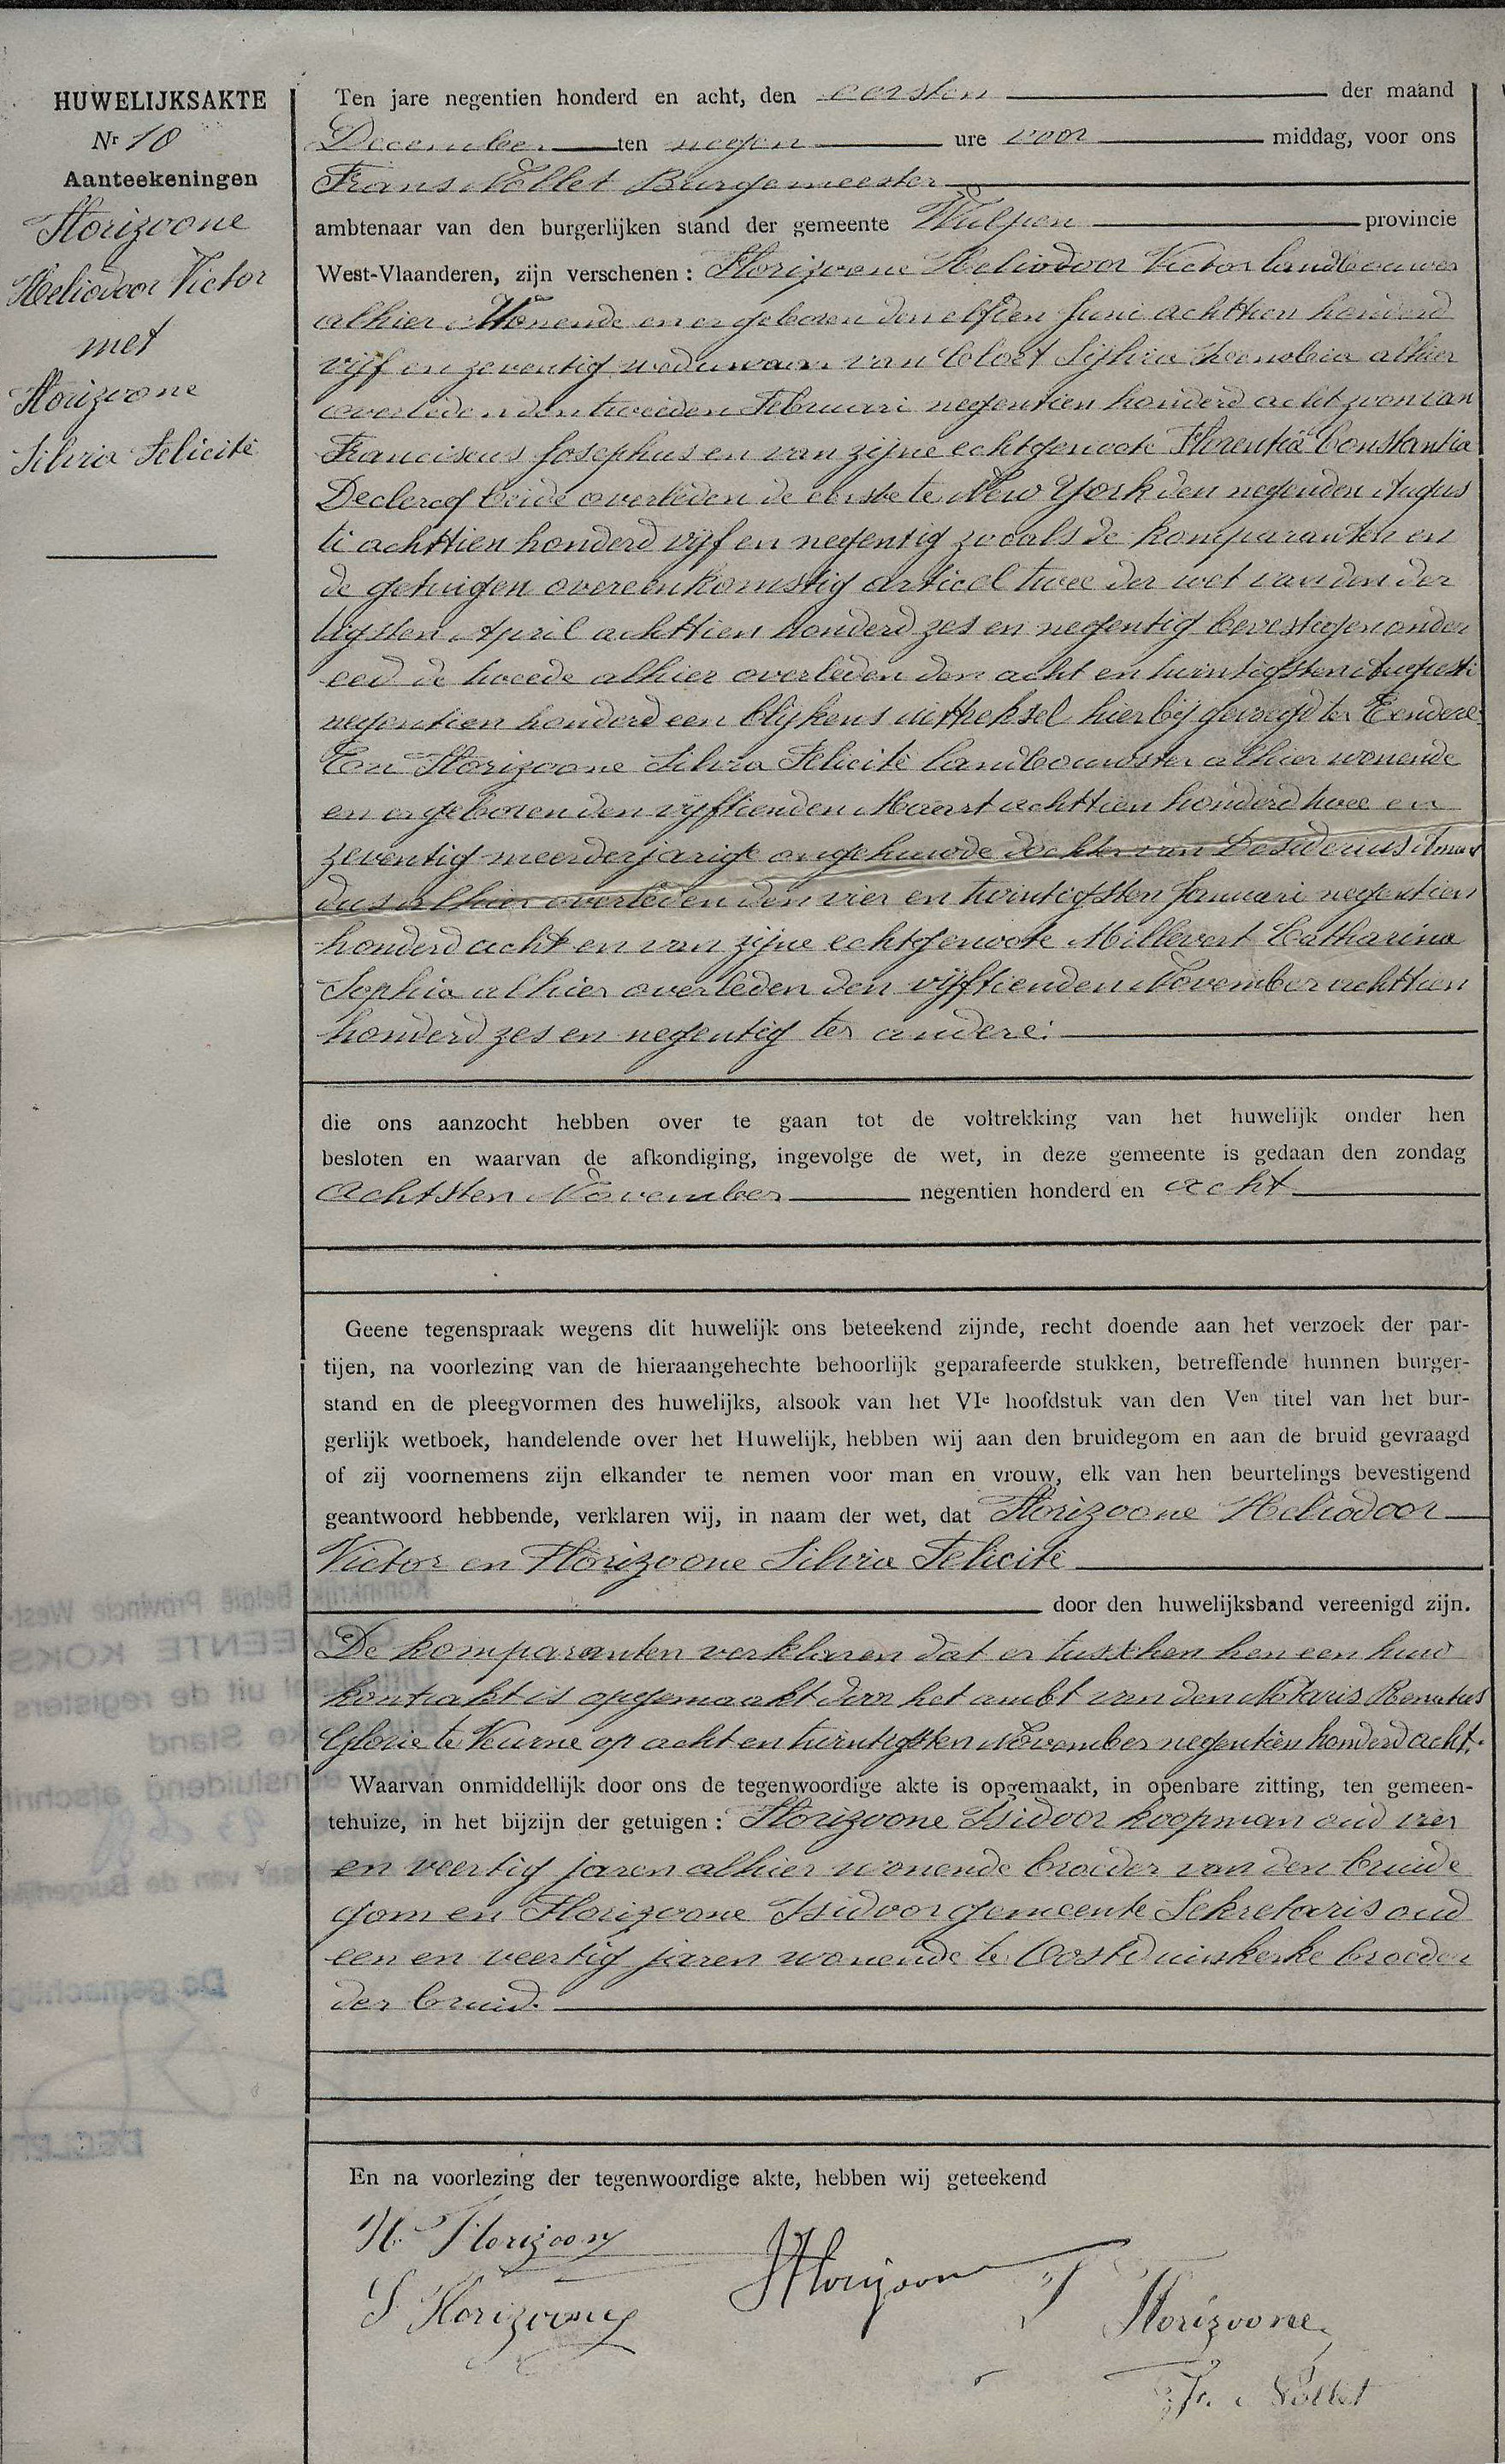 HUWELIJKSAKTE
Nr 10
Aanteekeningen
Florizoone
Heliodoor Victor
met
Florizoone
Silvia Felicité
Ten jare negentien honderd en acht, den eersten der maand
December ten negen ure voor middag, voor ons
Frans Nollet Burgemeester
ambtenaar van den burgerlijken stand der gemeente Wulpen provincie
West-Vlaanderen, zijn verschenen : Florizoone Heliodoor Victor landbouwer
alhier wonende en er geboren den elfden Juni achttien honderd
vijf en zeventig weduwaar van Cloet Silvia alhier
overleden den tweeden Februari negentien honderd acht zoon van
Franciscus Josephus en van zijne echtgenoote Florentia Constantia
Declercq beide overleden de eerste te New York den negenden Augus
ti achttien honderd vijf en negentig zooals de komparanten en
de getuigen overeenkomstig articel twee der wet van den der
tigsten April achttien honderd zes en negentig bevestigen onder
eed de tweede alhier overleden den acht en twintigsten Augusti
negentien honderd een blijkens uittreksel hierbij gevoegd ter Eendere
En Florizoone Silvia Felicité landbouwster alhier wonende
en er geboren den vijftienden Maart achttien honderd twee en
zeventig meerderjarige ongehuwde dochter van Desiderius Aman
dus alhier overleden den vier en twintigsten Januari negentien
honderd acht en van zijne echtgenoote Millevert Catharina
Sophia alhier overleden den vijftienden November achttien
honderd zes en negentig ter andere:
die ons aanzocht hebben over te gaan tot de voltrekking van het huwelijk onder hen
besloten en waarvan de afkondiging, ingevolge de wet, in deze gemeente is gedaan den zondag
Achtsten November negentien honderd en acht
Geene tegenspraak wegens dit huwelijk ons beteekend zijnde, recht doende aan het verzoek der par-
tijen, na voorlezing van de hieraangehechte behoorlijk geparafeerde stukken, betreffende hunnen burger-
stand en de pleegvormen des huwelijks, alsook van het VIe hoofdstuk van den Ven titel van het bur-
gerlijk wetboek, handelende over het Huwelijk, hebben wij aan den bruidegom en aan de bruid gevraagd
of zij voornemens zijn elkander te nemen voor man en vrouw, elk van hen beurtelings bevestigend
geantwoord hebbende, verklaren wij, in naam der wet, dat Florizoone Heliodoor
Victor en Florizoone Silvia Felicité
door den huwelijksband vereenigd zijn.
De komparanten verklaren dat er tusschen hen een huw
kontrakt is opgemaakt door het ambt van den Notaris Renatus
Glorie te Veurne op acht en twintigsten November negentien honderd acht.
Waarvan onmiddellijk door ons de tegenwoordige akte is opgemaakt, in openbare zitting, ten gemeen-
tehuize, in het bijzijn der getuigen : Florizoone Isidoor koopman oud vier
en veertig jaren alhier wonende broeder van den bruide
gom en Florizoone Isidoor gemeente Sekretaris oud
een en veertig jaren wonende te Oostduinkerke broeder
der bruid.
En na voorlezing der tegenwoordige akte, hebben wij geteekend
H. Florizoone
S Florizoone
Florizoone
Florizoone
Fr. Nollet